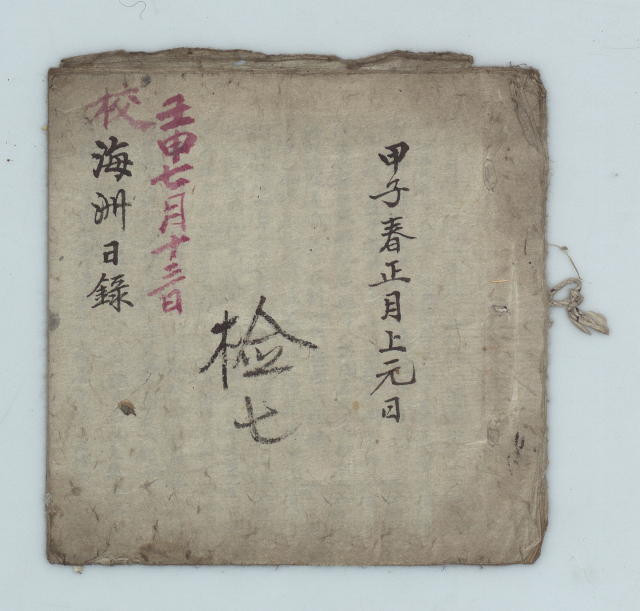 甲子春正月上元日
检七
壬申七月十三日
校
海州日錄